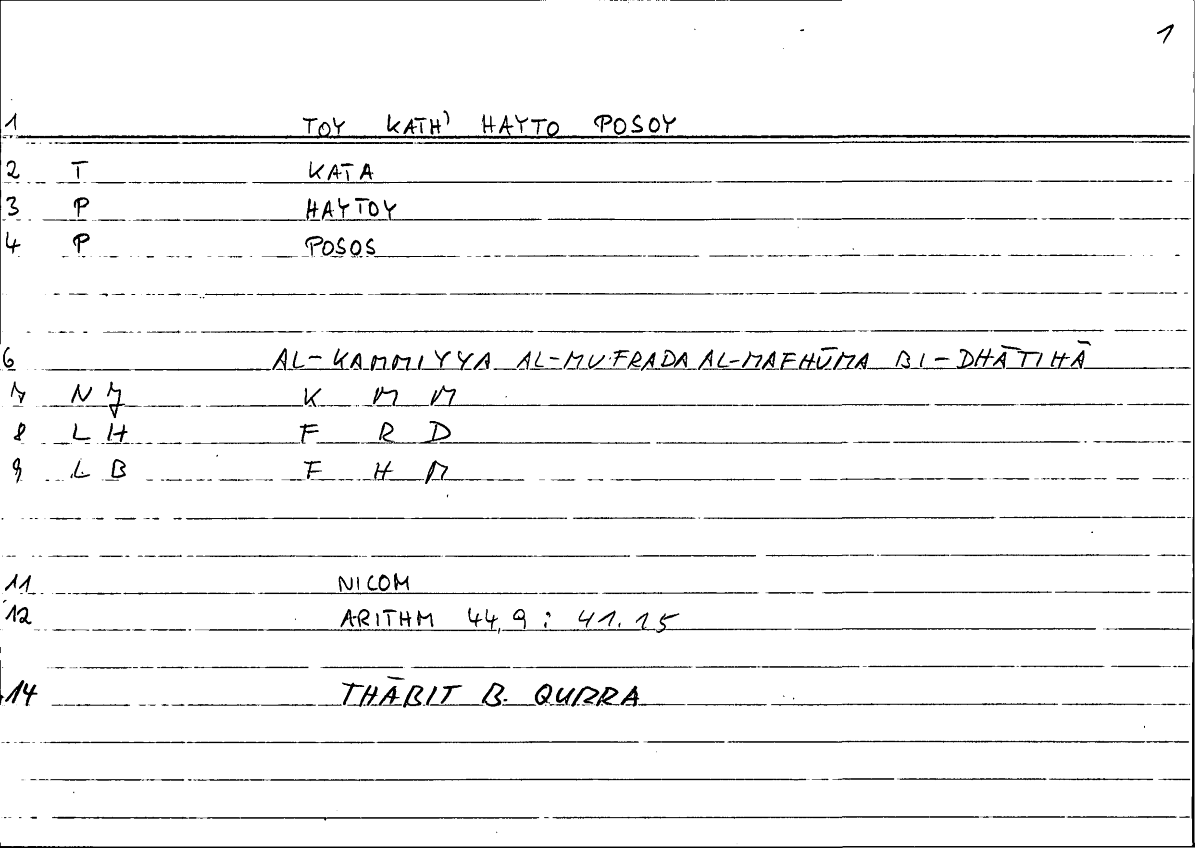 1
1 TOY KATH' HAYTO POSOY
2 T KATA
3 P HAYTOY
4 P POSOS
6 AL-KAMMIYYA AL-MUFRADA AL-MAFHŪMA BI-DHĀTIHĀ
7 N J K M M
8 L H F R D
9 L B F H M
11 NICOM
12 ARITHM 44,9 : 41.15
14 THĀBIT B. QURRA